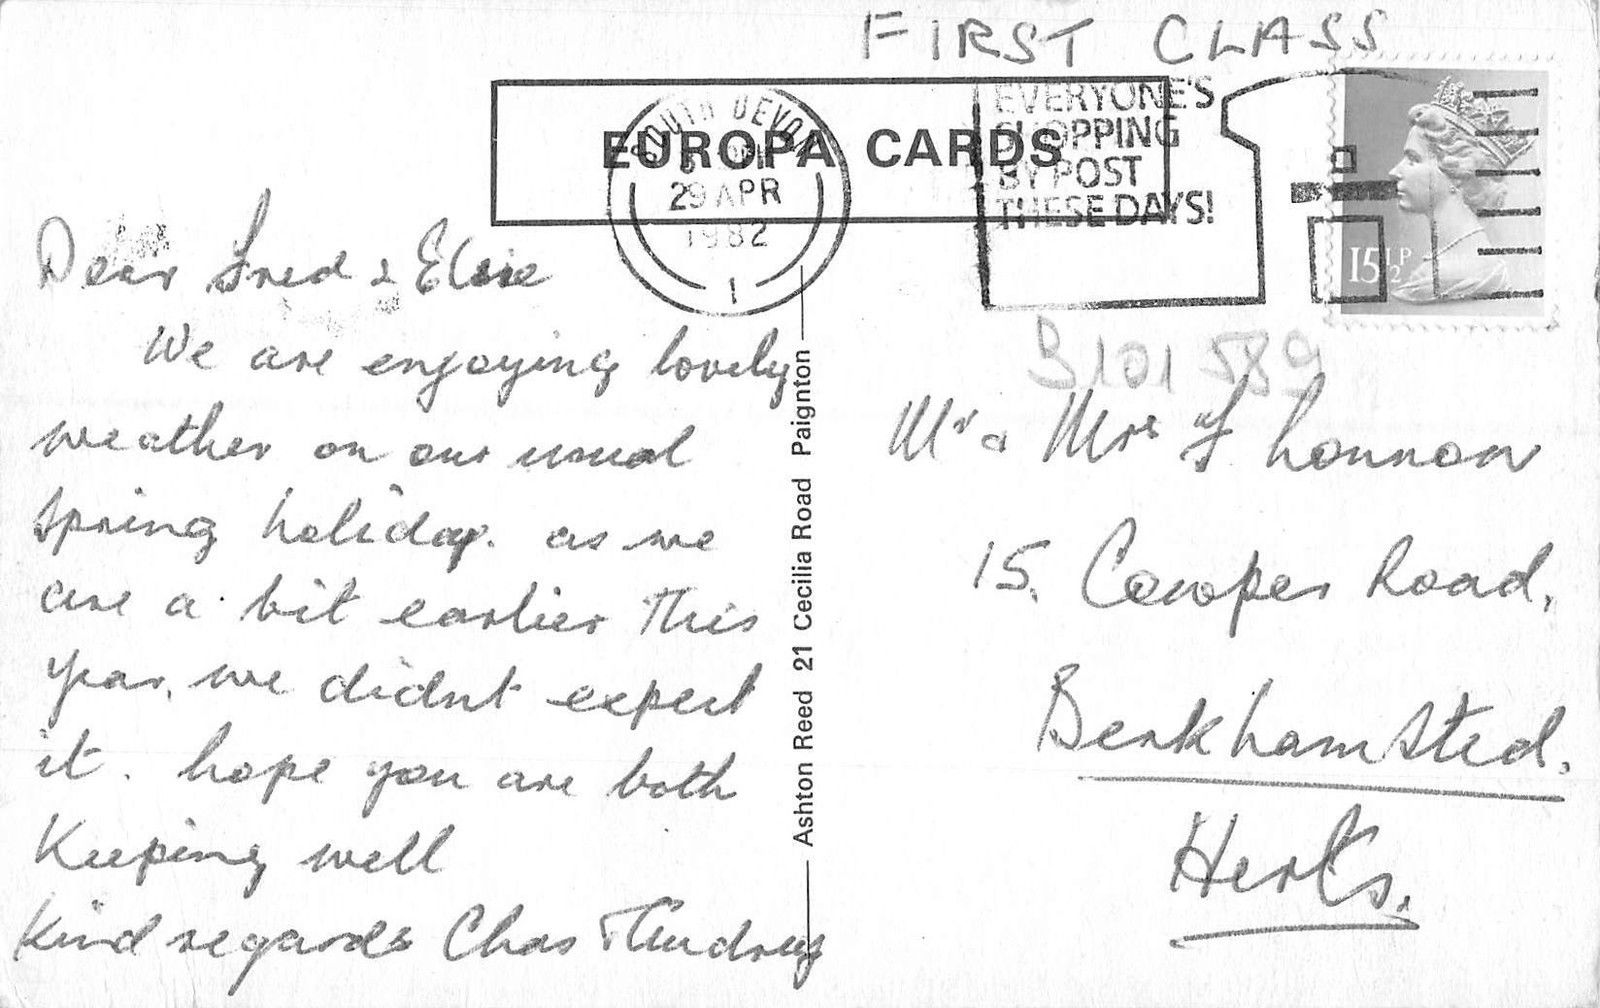 FIRST CLASS
EUROPA CARDS
SOUTH DEVON
29 APR
1982
1
EVERYONE'S
SHOPPING
BY POST
THESE DAYS!
15½P
Dear Fred & Elsie
We are enjoying lovely
weather on our usual
spring holiday. as we
are a bit earlier this
year, we didnt expect
it. hope you are both
Keeping well
Kind regards Chas
Ashton Reed 21 Cecilia Road Paignton
3101589
Mr & Mrs F Lonnon
15. Cowper Road,
Berkhamsted.
Herts.